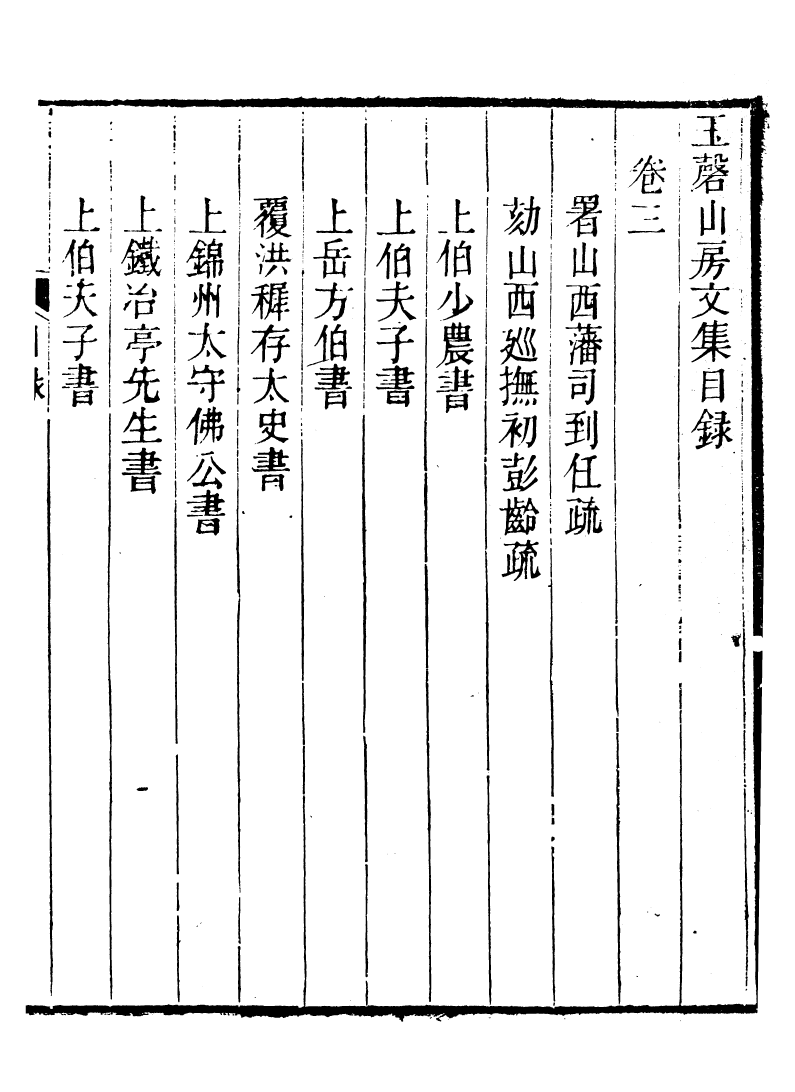 玉磬山房文集目録
卷三
署山西藩司到任疏
劾山西廵撫初彭齡疏
上伯少農書
上伯夫子書
上岳方伯書
覆洪穉存太史書
上錦州太守佛公書
上鐵冶亭先生書
上伯夫子書